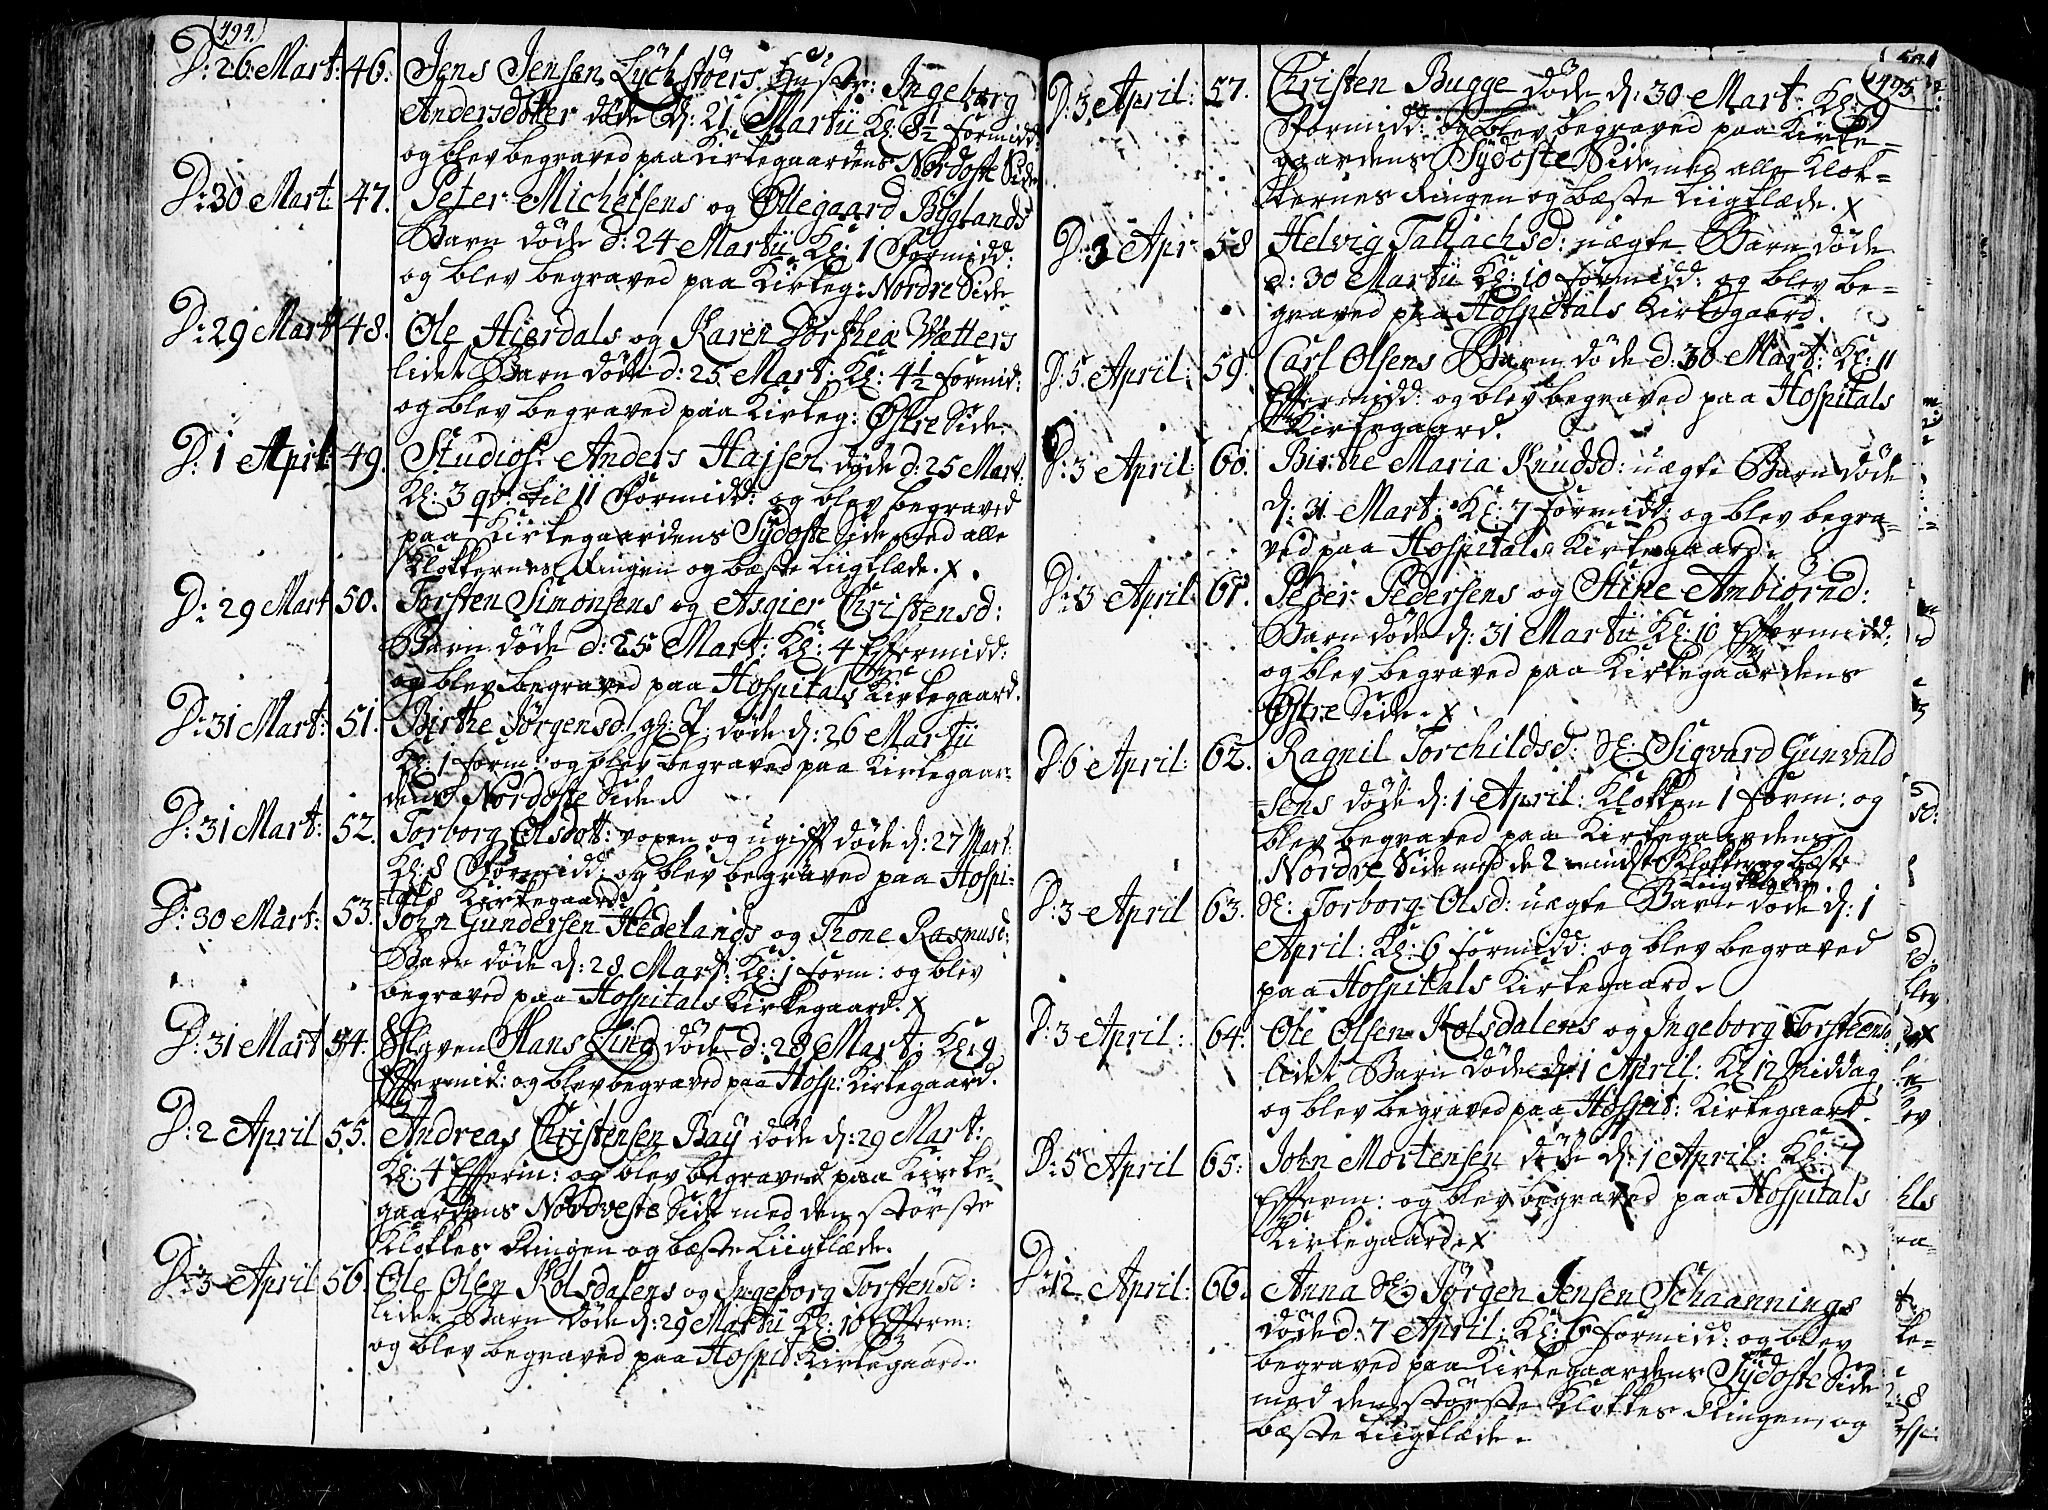 494.
D: 26 Mart: 46. Jens Jensen Lÿchstöers Hustr: Ingeborg
Andersdotter døde d: 21 Martii Kl: 8½ Formidd:
og blev begraved paa Kirkegaardens Nordoste Side
D: 30 Mart: 47. Peter Michelsens og Ollegaard Bÿglands
Barn døde d: 24 Martii Kl: 1 Formidd:
og blev begraved paa Kirkeg: Nordre Side
D: 29 Mart 48. Ole Hierdals og Karen Dorthea Wætters
lidet Barn døde d: 25 Mart: Kl: 4½ Formid:
og blev begraved paa Kirkeg: Østre Side.
D: 1 April: 49. Studios: Anders Hajsen døde d: 25 Mart:
Kl: 3 qv. til 11 Formidd: og blev begraved
paa Kirkegaardens Sÿdoste Side med alle
Klokkernes Ringen og bæste Liigklæde. X.
D: 29 Mart 50. Torsten Simonsens og Asgier Christensd:
Barn døde d: 25 Mart: Kl: 4 Eftermidd:
og blev begraved paa Hospitals Kirkegaard.
D: 31 Mart: 51. Birthe Jørgensd: døde d: 26 Martii
Kl: 1 Form: og blev begraved paa Kirkegaar-
dens Nordoste Side.
D: 31 Mart: 52. Torborg Olsdott: voxen og ugift døde d: 27 Mart:
Kl: 8 Formidd: og blev begraved paa Hospi-
tals Kirkegaard.
D: 30 Mart: 53. John Gundersen Hedelands og Thone Rasmusd:
Barn døde d: 28 Mart: Kl: 1 Form: og blev
begraved paa Hospitals Kirkegaard. X
D: 31 Mart 54. Slaven Hans Lind døde d: 28 Mart: Kl: 9
Eftermid: og blev begraved paa Hosp: Kirkegaard.
D: 2 April 55. Andreas Christensen Baÿ døde d: 29 Mart:
Kl: 4 Efterm: og blev begraved paa Kirke-
gaardens Nordveste Side med den störste
Klokkes Ringen og bæste Liigklæde.
D: 3 April 56. Ole Olsen Kolsdalens og Ingeborg Torstensd:
lidet Barn døde d: 29 Martii Kl: 10 Efterm:
og blev begraved paa Hospit: Kirkegaard.
495.
D: 3 April: 57. Christen Bugge døde d: 30 Mart: Kl: 9
Formidd: og blev begraved paa Kirke-
gaardens Sÿdoste Side med alle Klok-
kernes Ringen og bæste Liigklæde. X
D: 3 Apr 58 Helvig Tallachsd: uægte Barn døde
d: 30 Martii Kl: 10 Formidd: og blev be-
graved paa Hospitals Kirkegaard.
D: 5 April: 59. Carl Olsens Barn døde d: 30 Mart: Kl: 11
Eftermidd: og blev begraved paa Hospitals
Kirkegaard.
D: 3 April: 60. Birthe Maria Knudsd: uægte Barn døde
d: 31 Mart: Kl: 7 Formidd: og blev begra-
ved paa Hospitals Kirkegaard.
D: 3 April: 61. Peder Pedersens og Stine Ambiørnd:
Barn døde d: 31 Martii Kl: 10 Eftermidd:
og blev begraved paa Kirkegaardens
Østre Side. X
D 6 April: 62. Ragnil Torchildsd: Sigvard Gunvald
sens døde d: 1 April: Klokken 1 Form: og
blev begraved paa Kirkegaardens
Nordre Side med de 2 mindste Klokker og bæste
Liigklæde.
D: 3 April 63. Torborg Olsd: uægte Barn døde d: 1
April: Kl: 6 Formidd: og blev begraved
paa Hospitals Kirkegaard.
D: 3 April: 64. Ole Olsen Kolsdalens og Ingeborg Torstensd:
lidet Barn døde d: 1 April: Kl 12 Middag
og blev begraved paa Hospit: Kirkegaard.
D: 5 April 65: John Mortensen døde d: 1 April: Kl: 7
Efterm: og blev begraved paa Hospitals
Kirkegaard. X
D: 12 April: 66. Anna Jørgen Jensen Schaannings
døde d: 7 April: Kl: 6 Formidd: og blev
begraved paa Kirkegaardens Sÿdoste Side
med den störste Klokkes Ringen, og
bæste Liigklæde.